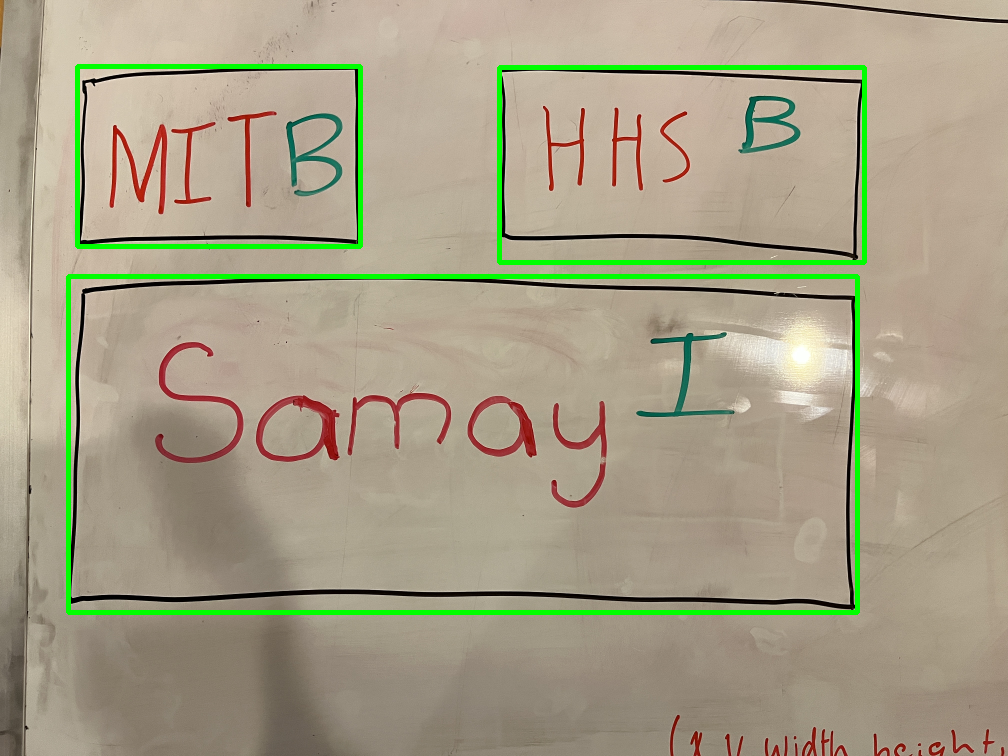 MIT B
HHS B
Samay I
(x y width height,